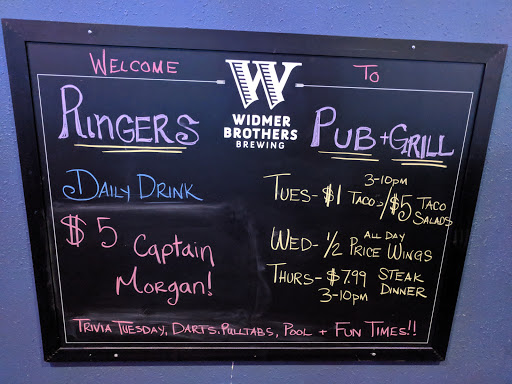 WELCOME TO
W
WIDMER
BROTHERS
BREWING
RINGERS PUB + GRILL
DAILY DRINK
$5 Captain
Morgan!
3-10pm
TUES- $1 TACO'S/$5 TACO
SALADS
ALL DAY
WED- 1/2 PRICE WINGS
THURS- $7.99 STEAK
3-10pm DINNER
TRIVIA TUESDAY, DARTS, PULLTABS, POOL + FUN TIMES!!